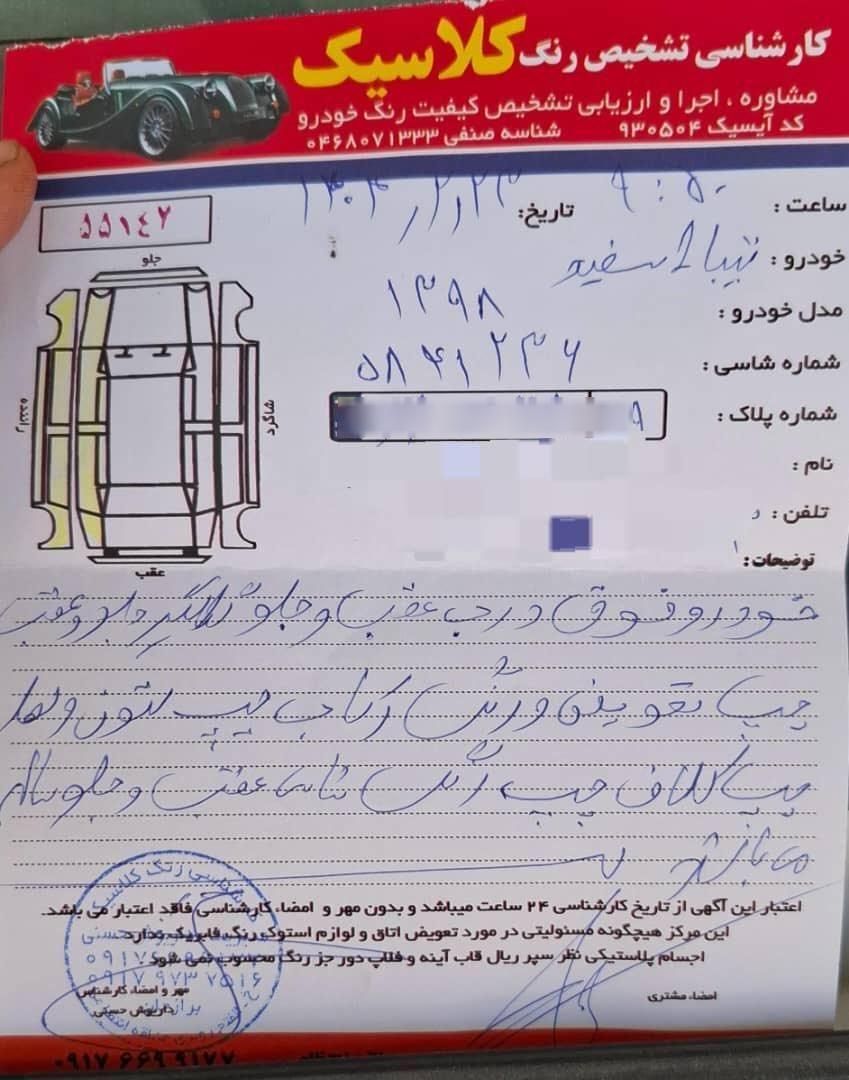 کارشناسی تشخیص رنگ کلاسیک
مشاوره ، اجرا و ارزیابی تشخیص کیفیت رنگ خودرو
کد آیسیک ۹۳۰۵۰۴ شناسه صنفی ۰۴۶۸۰۷۱۳۳۳
ساعت : ۹:۵۰ تاریخ: ۱۴۰۴/۲/۲۳
۵۵۱۴۲
جلو
خودرو : تیبا ۲ سفید
مدل خودرو : ۱۳۹۸
شماره شاسی : ۵۸۴۱۲۳۶
شماره پلاک :
راننده
شاگرد
نام :
تلفن :
عقب
توضیحات :
خودرو فوق درب عقب و جلو گلگیر جلو و عقب
چپ تعویض و رنگ رکاب چپ ستون ولها
چپ کلاف چپ رنگ شاسی عقب و جلو سالم
می باشد
اعتبار این آگهی از تاریخ کارشناسی ۲۴ ساعت میباشد و بدون مهر و امضاء کارشناسی فاقد اعتبار می باشد.
این مرکز هیچگونه مسئولیتی در مورد تعویض اتاق و لوازم استوک رنگ فابریک ندارد
اجسام پلاستیکی نظر سپر ریال قاب آینه و فلاپ دور جز رنگ محسوب نمی شود.
مهر و امضاء کارشناس
داریوش حسنی
امضاء مشتری
کارشناسی رنگ کلاسیک
۰۹۱۷ ۹۷۳ ۷۵۱۶
برازجان
۰۹۱۷ ۶۶۹ ۹۱۷۷